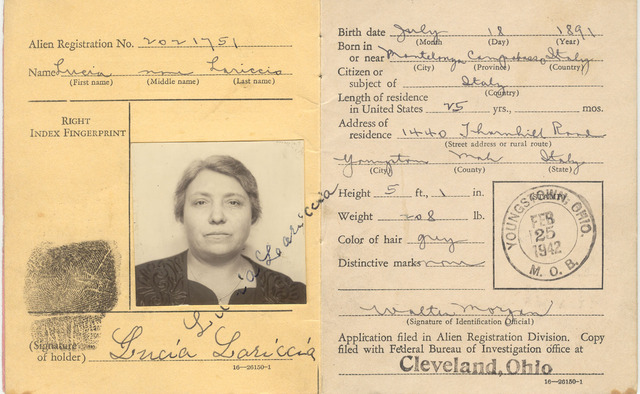 Alien Registration No. 2021751
Name Lucia none Lariccia
(First name) (Middle name) (Last name)
RIGHT
INDEX FINGERPRINT
Lucia Lariccia
(Signature
of holder) Lucia Lariccia
16—26150-1
Birth date July 18 1891
(Month) (Day) (Year)
Born in
or near Montelongo Campobasso Italy
(City) (Province) (Country)
Citizen or
subject of Italy
(Country)
Length of residence
in United States 25 yrs., mos.
Address of
residence 1440 Thornhill Road
(Street address or rural route)
Youngstown Mah Italy
(City) (County) (State)
Height 5 ft., 1 in.
Weight 208 lb.
Color of hair grey
Distinctive marks none
YOUNGSTOWN, OHIO.
FEB
25
1942
M. O. B.
Walter Morgan
(Signature of Identification Official)
Application filed in Alien Registration Division. Copy
filed with Federal Bureau of Investigation office at
Cleveland, Ohio
16—26150-1